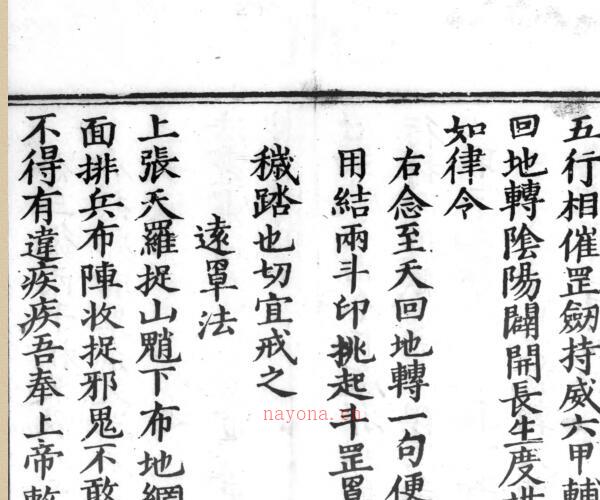 五行相催罡劒持威六甲輔
回地轉陰陽闢開長生度世
如律令
右念至天回地轉一句便
用結兩斗印挑起斗罡罩
穢踏也切宜戒之
遠罩法
上張天羅捉山魈下布地網
面排兵布陣收捉邪鬼不敢
不得有違疾疾吾奉上帝敕
nayona.cn